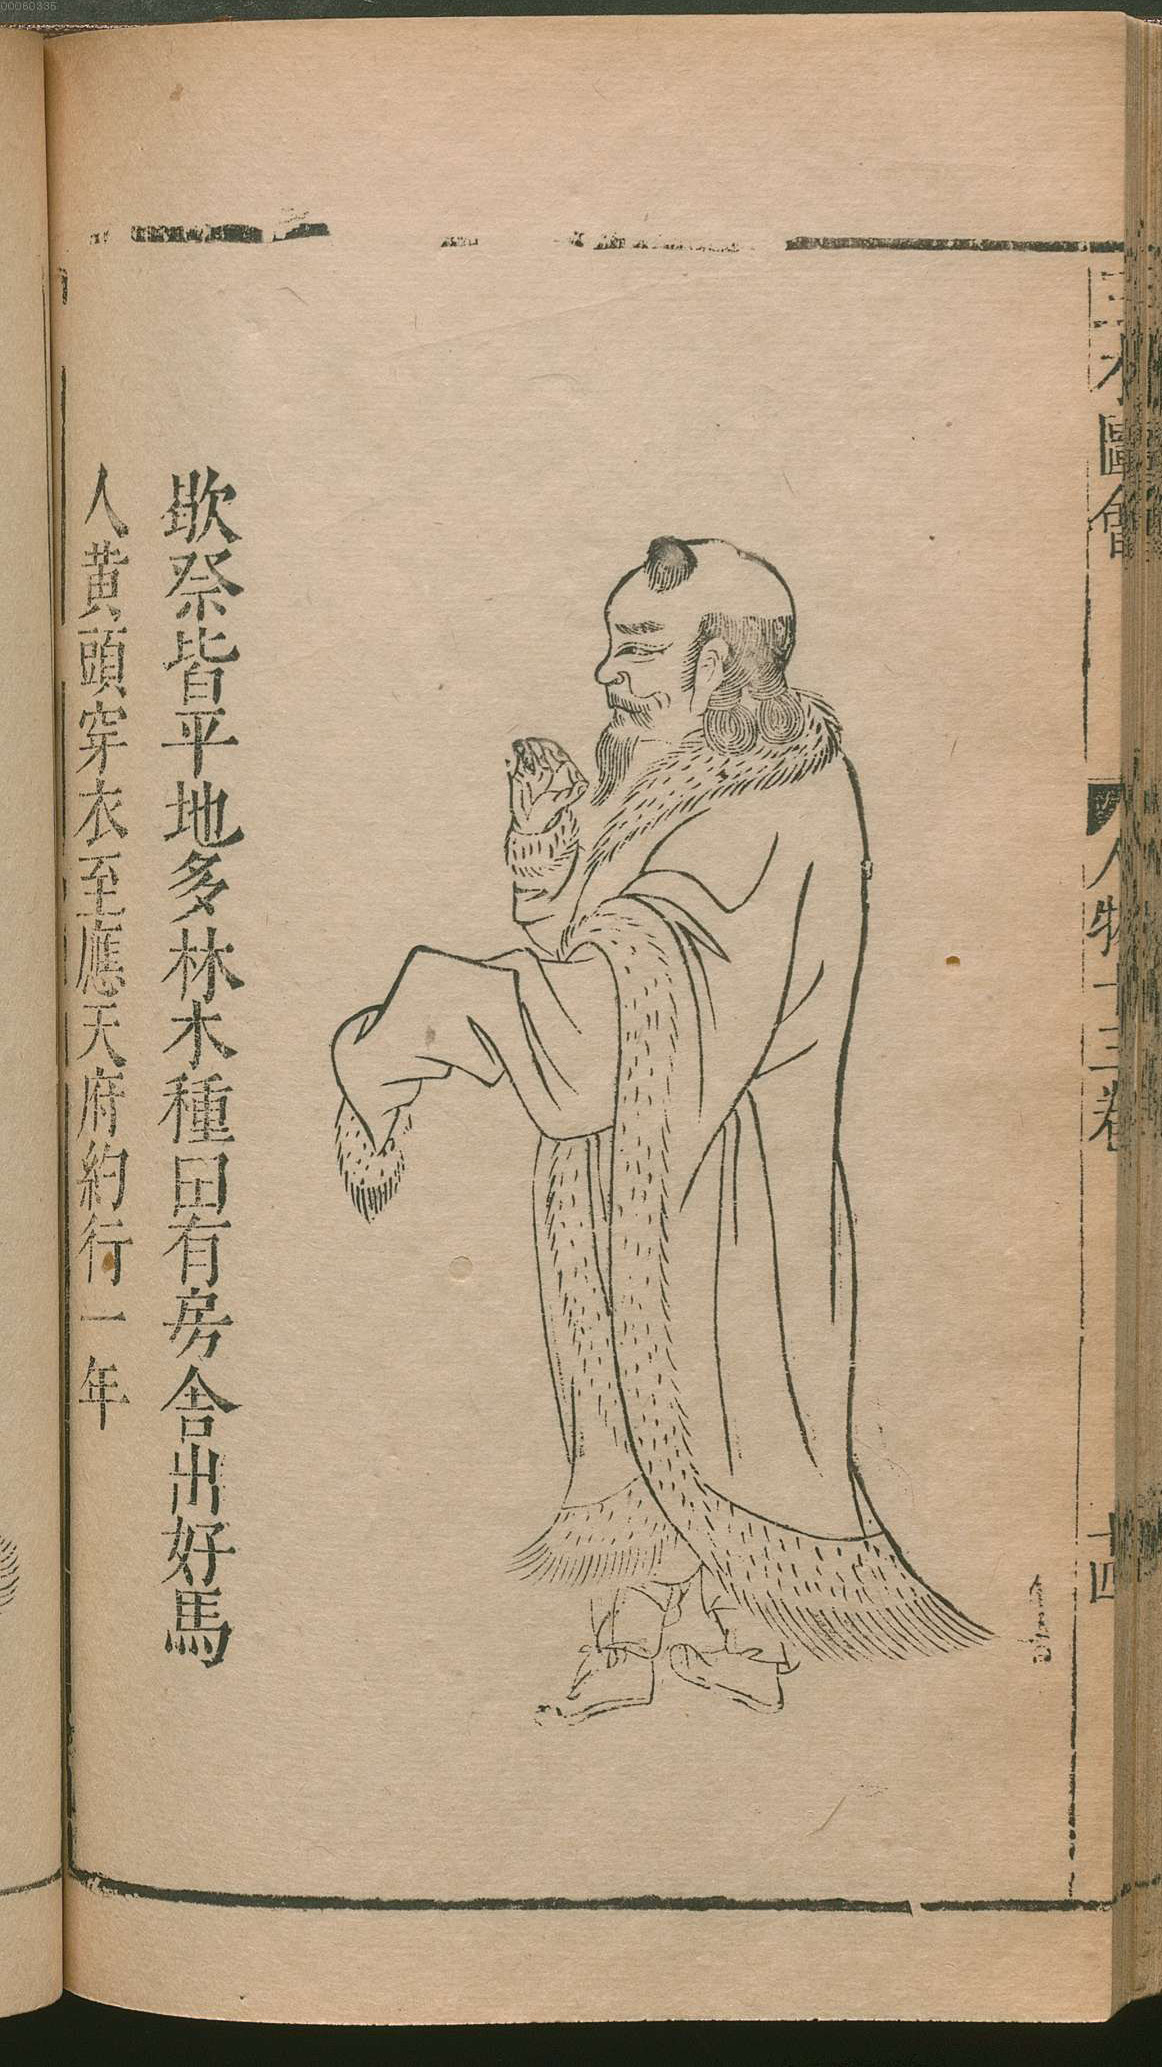 三才圖會
人物十三卷
十四
歇祭皆平地多林木種田有房舍出好馬
人黄頭穿衣至應天府約行一年
00060335